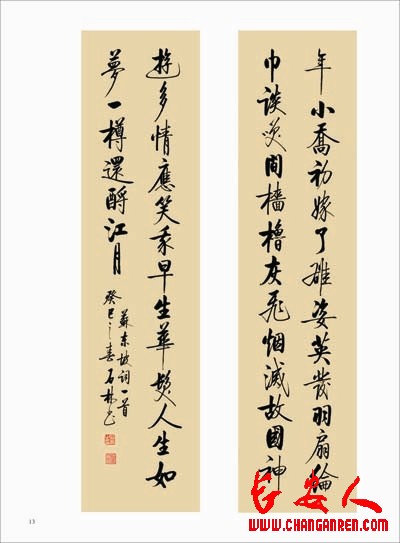 年小喬初嫁了雄姿英發羽扇綸
巾談笑間檣櫓灰飛烟滅故國神
遊多情應笑我早生華髮人生如
夢一樽還酹江月
蘇東坡詞一首
癸巳之春石林書
13
长安人
WWW.CHANGANREN.COM